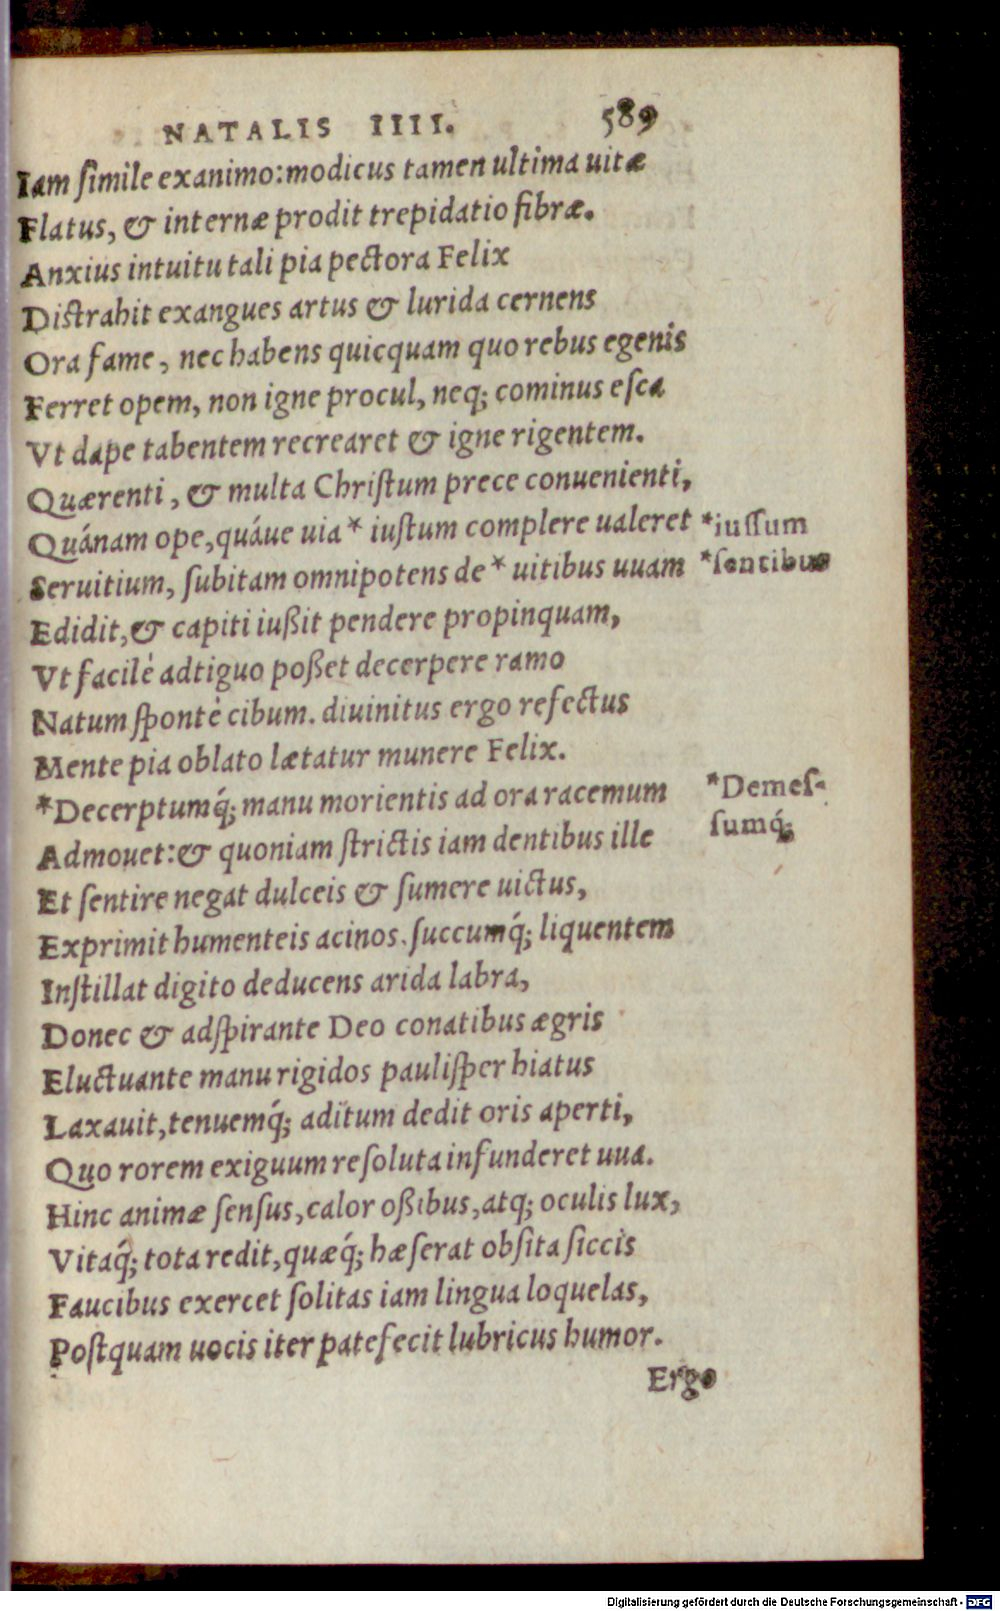 NATALIS IIII. 589
Iam ſimile exanimo: modicus tamen ultima uitæ
Flatus, & internæ prodit trepidatio fibræ.
Anxius intuitu tali pia pectora Felix
Distrahit exangues artus & lurida cernens
Ora fame, nec habens quicquam quo rebus egenis
Ferret opem, non igne procul, neq; cominus eſca
Vt dape tabentem recrearet & igne rigentem.
Quærenti, & multa Chriſtum prece conuenienti,
Quánam ope, quáue uia * iuſtum complere ualeret *iuſſum
Seruitium, ſubitam omnipotens de * uitibus uuam *ſentibus
Edidit, & capiti iußit pendere propinquam,
Vt facilè adtiguo poßet decerpere ramo
Natum ſpontè cibum. diuinitus ergo refectus
Mente pia oblato lætatur munere Felix.
*Decerptumq́; manu morientis ad ora racemum *Demeſ-
ſumq́;
Admouet: & quoniam ſtrictis iam dentibus ille
Et ſentire negat dulceis & ſumere uictus,
Exprimit humenteis acinos. ſuccumq́; liquentem
Inſtillat digito deducens arida labra,
Donec & adſpirante Deo conatibus ægris
Eluctuante manu rigidos pauliſper hiatus
Laxauit, tenuemq́; aditum dedit oris aperti,
Quo rorem exiguum reſoluta infunderet uua.
Hinc animæ ſenſus, calor oßibus, atq; oculis lux,
Vitaq́; tota redit, quæq́; hæſerat obſita ſiccis
Faucibus exercet ſolitas iam lingua loquelas,
Poſtquam uocis iter patefecit lubricus humor.
Ergo
Digitalisierung gefördert durch die Deutsche Forschungsgemeinschaft - DFG